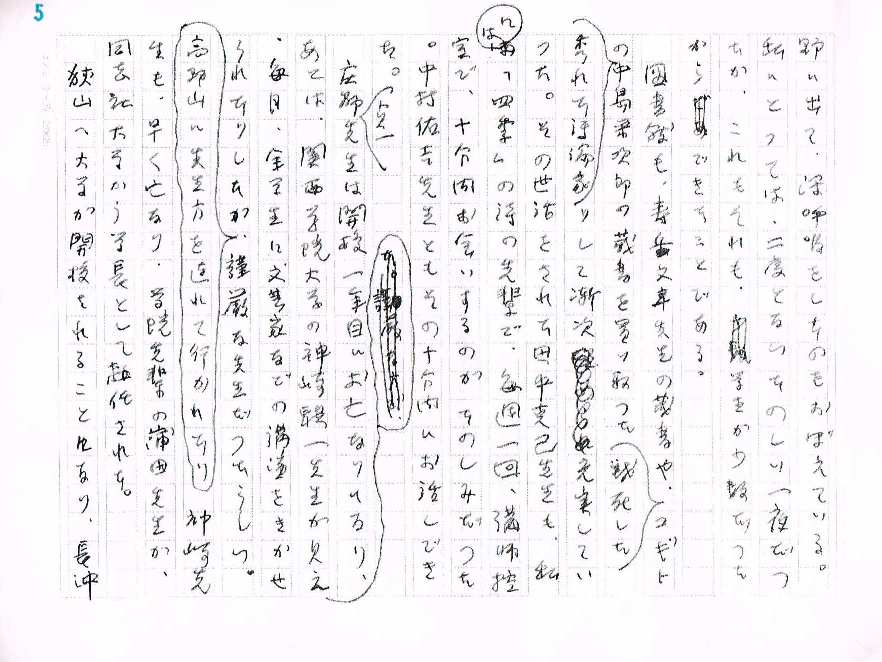 5
野に出て、深呼吸をしたのをおぼえている。
私にとっては、二度とないたのしい一夜だっ
たが、これもそれも、学生が少数だった
からできたことである。
図書館も、寿岳文章先生の蔵書や、コギト
の中島栄次郎の蔵書を買い取った(戦死した
秀れた評論家)りして漸次充実してい
った。その世話をされた田中克己先生も、私
には「四季」の詩の先輩で、毎週一回、講師控
室で、十分間お会いするのがたのしみだった
。中村佑吉先生ともその十分間にお話しでき
た。
庄野先生は開校一年目にお亡なりになり、
あとは、関西学院大学の神崎驥一先生が見え
、毎月、全学生に文芸家などの講演をきかせ
られたりしたが、謹厳な先生だったらしい。
高野山に先生方を連れて行かれたり 神崎先
生も、早く亡なり、学院先輩の蒲田先生が、
同志社大学から学長として赴任された。
狭山へ大学が開校されることになり、長沖